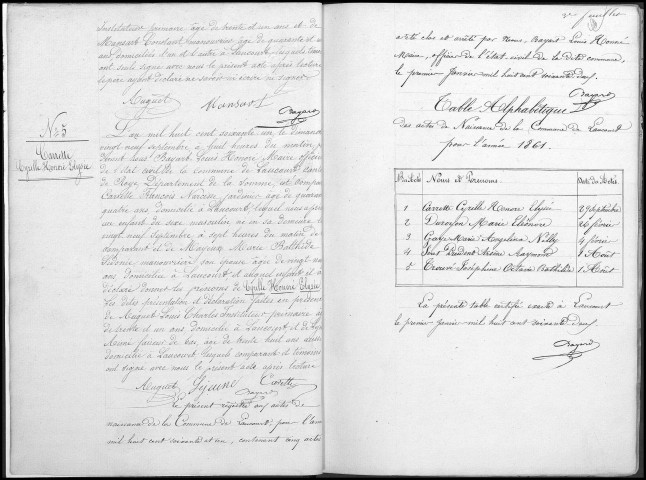 Instituteur primaire âgé de trente et un ans et de
Mansart Constant manouvrier, âgé de quarante et
ans domiciliés l'un et l'autre à Laucourt, lesquels
ont seuls signé avec nous le présent acte après lecture
le père ayant déclaré ne savoir ni écrire ni signer
Huguet Mansart
Bayard
N° 5
Carrette
Cyrille Honoré Elysée
L'an mil huit cent soixante un le dimanche
vingt neuf septembre à huit heures du matin, par
devant nous Bayart Louis Honoré Maire officier
de l'état civil de la commune de Laucourt canton
de Roye, Département de la Somme, est comparu
Carrette François Narcisse, jardinier âgé de quarante
quatre ans, domicilié à Laucourt, lequel nous a
un enfant du sexe masculin, né en sa demeure le
vingt neuf septembre à sept heures du matin de
comparant et de Mayeux Marie Bathilde
manouvrière son épouse âgée de vingt
ans, domiciliée à Laucourt et auquel enfant il a
déclaré donner les prénoms de Cyrille Honoré Elysée
Les dites présentation et déclaration faites en présence
de Huguet Louis Charles Instituteur primaire, âgé
de trente et un ans domicilié à Laucourt et de
faiseur de bas, âgé de trente huit ans aussi
domicilié à Laucourt, lesquels comparant et témoins
ont signé avec nous le présent acte après lecture
Huguet Lejeune Carette
Bayard
Le présent registre aux actes de
naissance de la Commune de Laucourt pour l'an
mil huit cent soixante et un, contenant cinq actes
a été clos et arrêté par nous, Bayart Louis Honoré
Maire, officier de l'état civil de la dite commune,
le premier Janvier mil huit cent soixante deux.
Bayard
Table Alphabétique
des actes de Naissance de la Commune de Laucourt
pour l'année 1861.
Noms et Prénoms Date des Actes
1 Carrette Cyrille Honoré Elysée 29 septembre
2 Marie Eléonore 26 février
3 Marie Angelina Nelly 4 février
4 Prudent Arsène Raymond 1 Août
5 Joséphine Octavie Bathilde 1 Août
La présente table certifiée exacte à Laucourt
le premier Janvier mil huit cent soixante deux.
Bayard